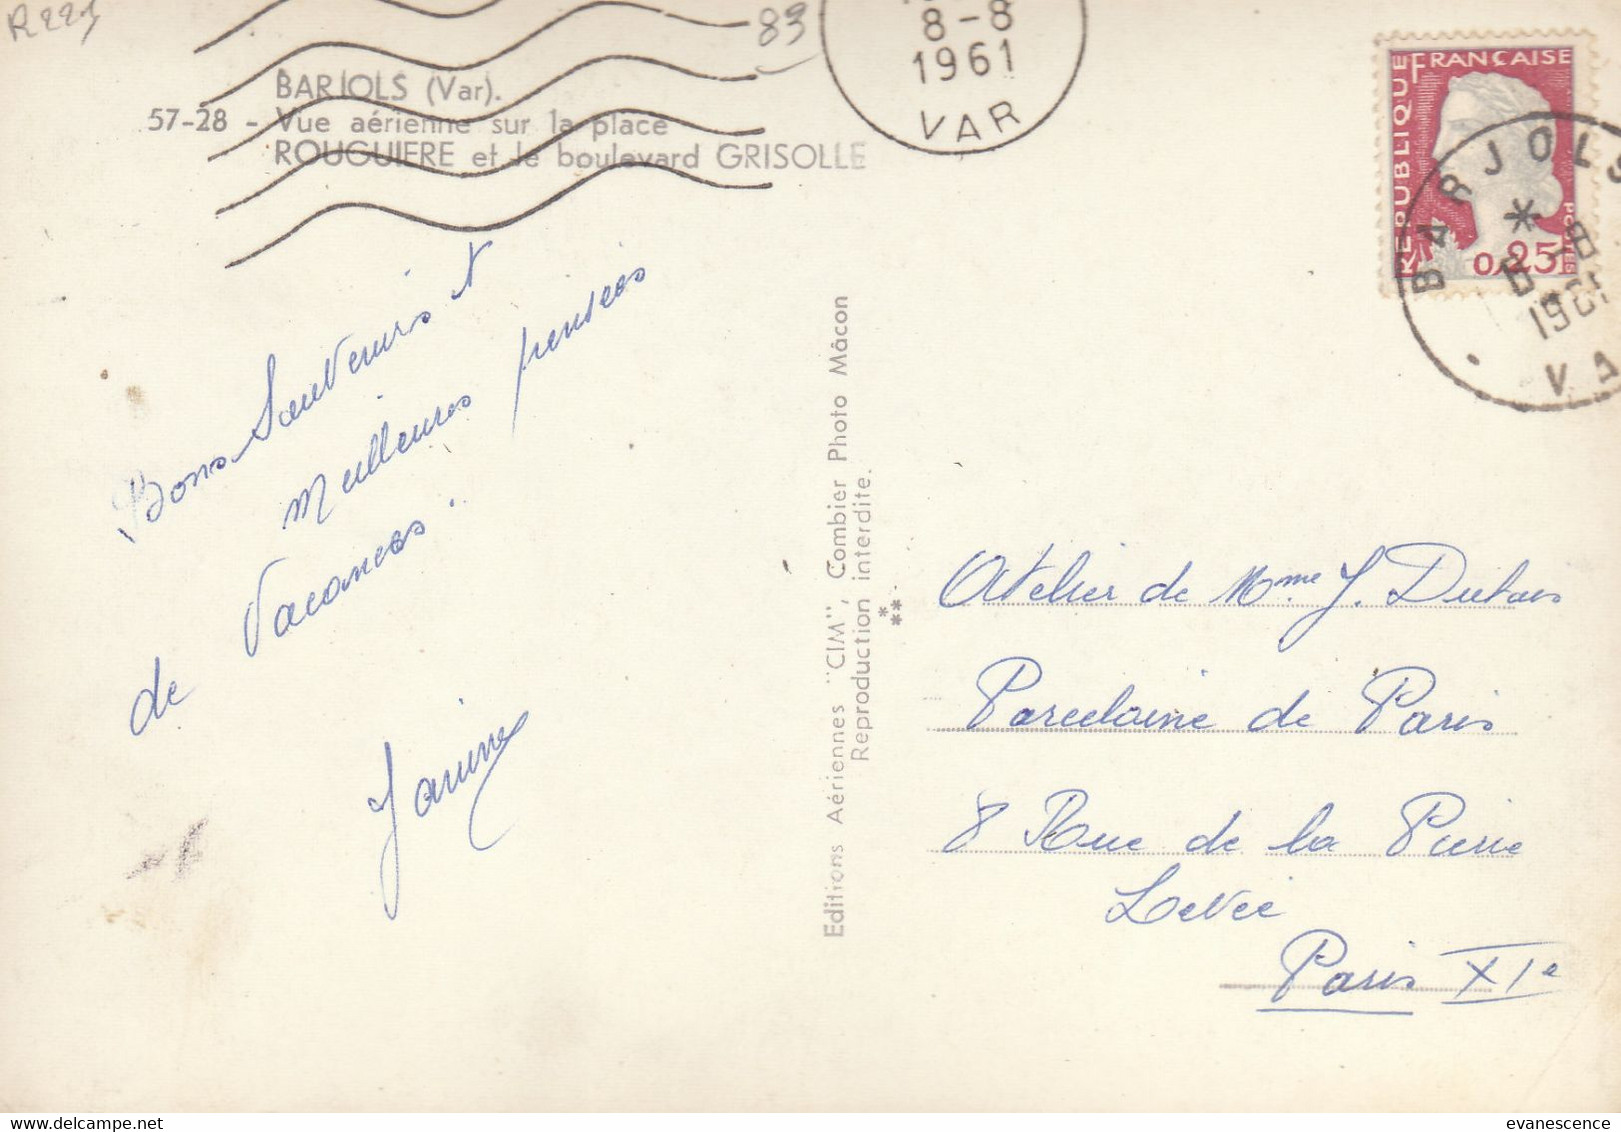 R221
83
8-8
1961
VAR
BARJOLS (Var).
57-28 - Vue aérienne sur la place
ROUGUIERE et le boulevard GRISOLLE
REPUBLIQUE FRANÇAISE
0,25
BARJOLS
*
8-8
1961
VA
Bons Souvenirs &
Meilleures pensées
de Vacances.
Janine
Editions Aériennes "CIM", Combier Photo Mâcon
Reproduction interdite.
***
Atelier de Mme J. Dubois
Porcelaine de Paris
8 Rue de la Pierre
Levée
Paris XIe
evanescence